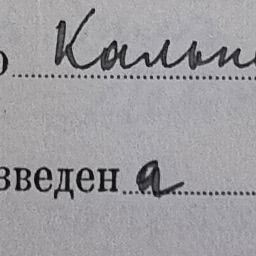 о Кальп
зведен а